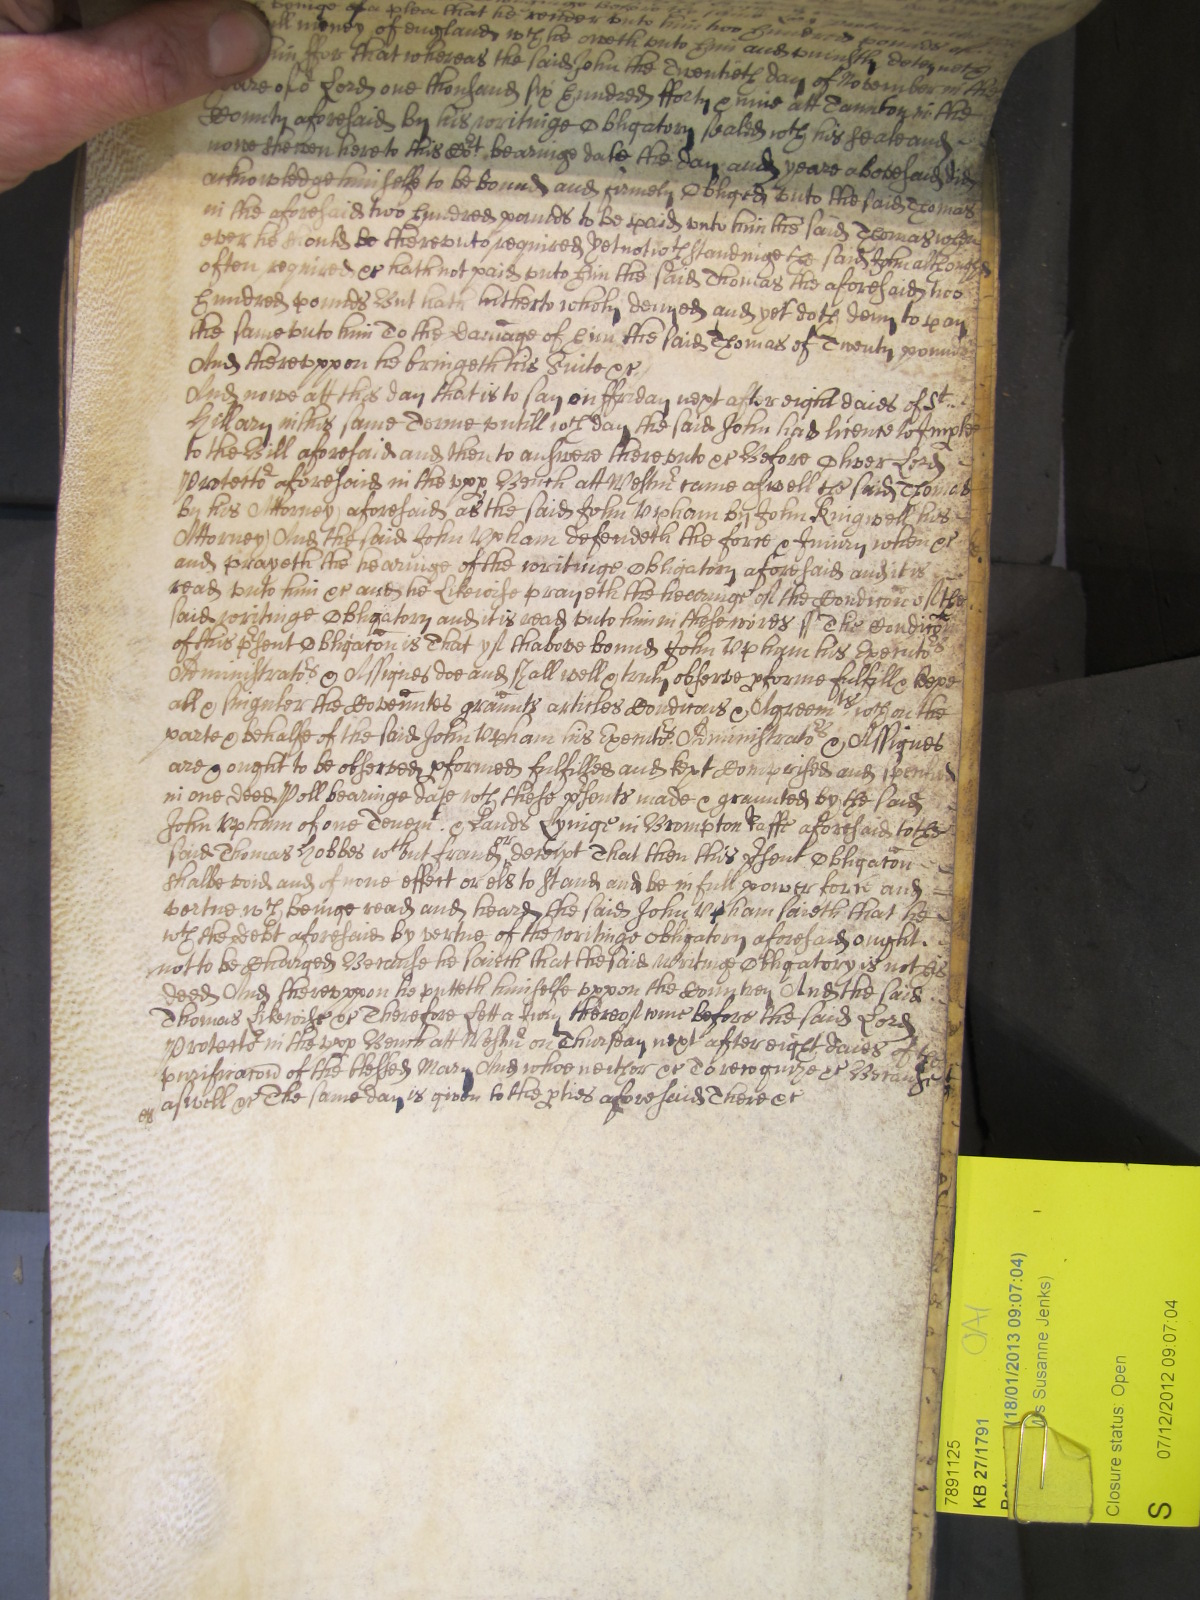 beinge of a plea that he render unto him two hundred pounds of
full money of england wch he oweth unto him and uniustly deteyneth
him ffor that whereas the said John the Twentieth day of November in the
yeare of or Lord one thousand six hundred fforty & nine att Taunton in the
County aforesaid by his writinge Obligatory sealed wth his seale and
nowe shewen here to this Cort bearinge date the day and yeare abovesaid did
acknowledge himselfe to be bound and firmely Obliged unto the said Thomas
in the aforesaid two hundred pounds to be paid unto him the said Thomas when
ever he should be thereunto required Yet notwthstandinge the said John although
often required &c hath not paid unto him the said Thomas the aforesaid two
hundred pounds But hath hitherto wholy denyed and yet doth deny to pay
the same unto him To the damage of him the said Thomas of Twenty pounds
And thereuppon he bringeth his Suite &c
And nowe att this day that is to say on ffriday next after eight daies of St.
Hillary in this same Terme untill wch day the said John had licence to Imple
to the Bill aforesaid and then to answere thereunto &c Before Oliver Lord
Protector aforesaid in the upp Bench att Westmr came aswell the said Thomas
by his Attorney aforesaid as the said John Upham by John Ringwell his
Attorney And the said John Upham defendeth the force & Iniury when &c
and prayeth the hearinge of the writinge Obligatory aforesaid and it is
read unto him &c and he Likewise prayeth the hearinge of the Condicon of the
said writinge Obligatory and it is read unto him in these words ss The Condicon
of this psent Obligacon is That yf thabove bound John Upham his Executors
Administrators & Assignes doe and shall well & truly observe pforme fulfill & kepe
all & singuler the Covenntes graunts articles Condicons & Agreemts wch on the
parte & behalfe of the said John Upham his Executrs Administrators & Assignes
are & ought to be observed pformed fulfilled and kept Comprised and specified
in one deed Poll bearinge date wth these psents made & graunted by the said
John Upham of one Tenemt. & Lands Lyinge in Brompton Raffe aforesaid to the
said Thomas Hobbes wthout fraud or deceipt That then this psent Obligacon
shalbe void and of none effect or els to stand and be in full power force and
vertue wch beinge read and heard the said John Upham saieth that he
wth the debt aforesaid by vertue of the writinge obligatory aforesaid ought
not to be Charged Because he saieth that the said writinge Obligatory is not his
deed And thereuppon he putteth himselfe uppon the Countrey And the said
Thomas Likewise &c Therefore lett a Jury thereof come before the said Lord
Protector in the upp Bench att Westmr on Thursday next after eight daies of the
purificacon of the blessed Mary And whoe neither &c To recognize &c Because
aswell &c The same day is given to the pties aforesaid There &c
7891125
KB 27/1791
(18/01/2013 09:07:04)
Ms Susanne Jenks)
Closure status: Open
S 07/12/2012 09:07:04